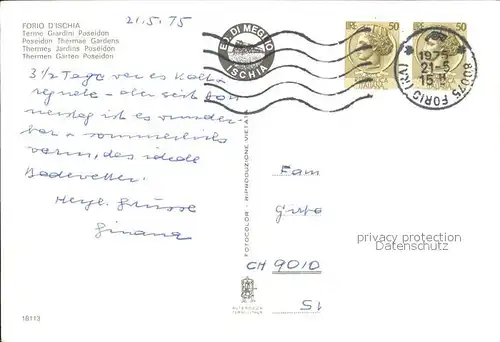 FORIO D'ISCHIA
Terme Giardini Poseidon
Poseidon Thermae Gardens
Thermes Jardins Poséidon
Thermen Gärten Poseidon
21.5.75
ED. DI MEGLIO
ISCHIA
50
50
ITALIANA
80075 FORIO (NA)
1975
21-5
15 H
3 1/2 Tage war es kalt +
regnete - aber seit Don
nerstag ist es wunder-
bar + sommerlich
warm, das ideale
Badewetter.
Herzl. Grüsse
FOTOCOLOR - RIPRODUZIONE VIETATA
Fam
CH 9010
privacy protection
oldthing.de
18113